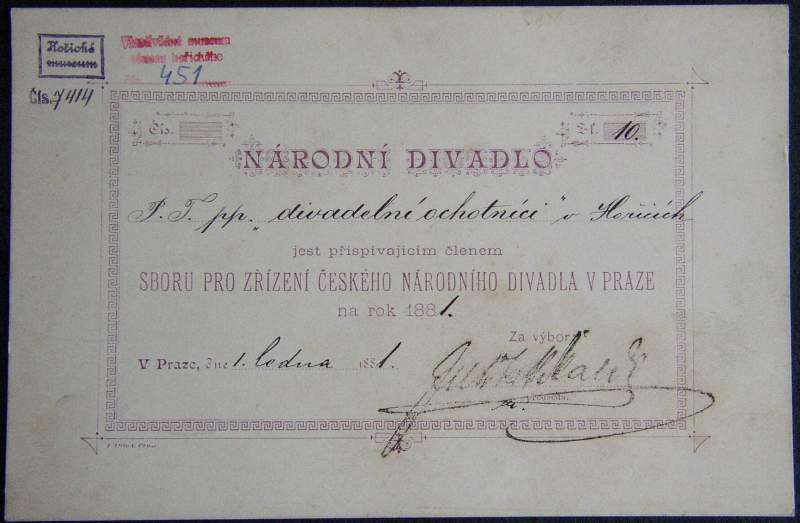 Hořické
museum
Čís. 7414
museum
451
Čís.
Zl. 10.
NÁRODNÍ DIVADLO
P. T. pp. „divadelní ochotníci" v Hořicích
jest přispívajícím členem
SBORU PRO ZŘÍZENÍ ČESKÉHO NÁRODNÍHO DIVADLA V PRAZE
na rok 1881.
Za výbor:
V Praze, dne 1. ledna 1881.